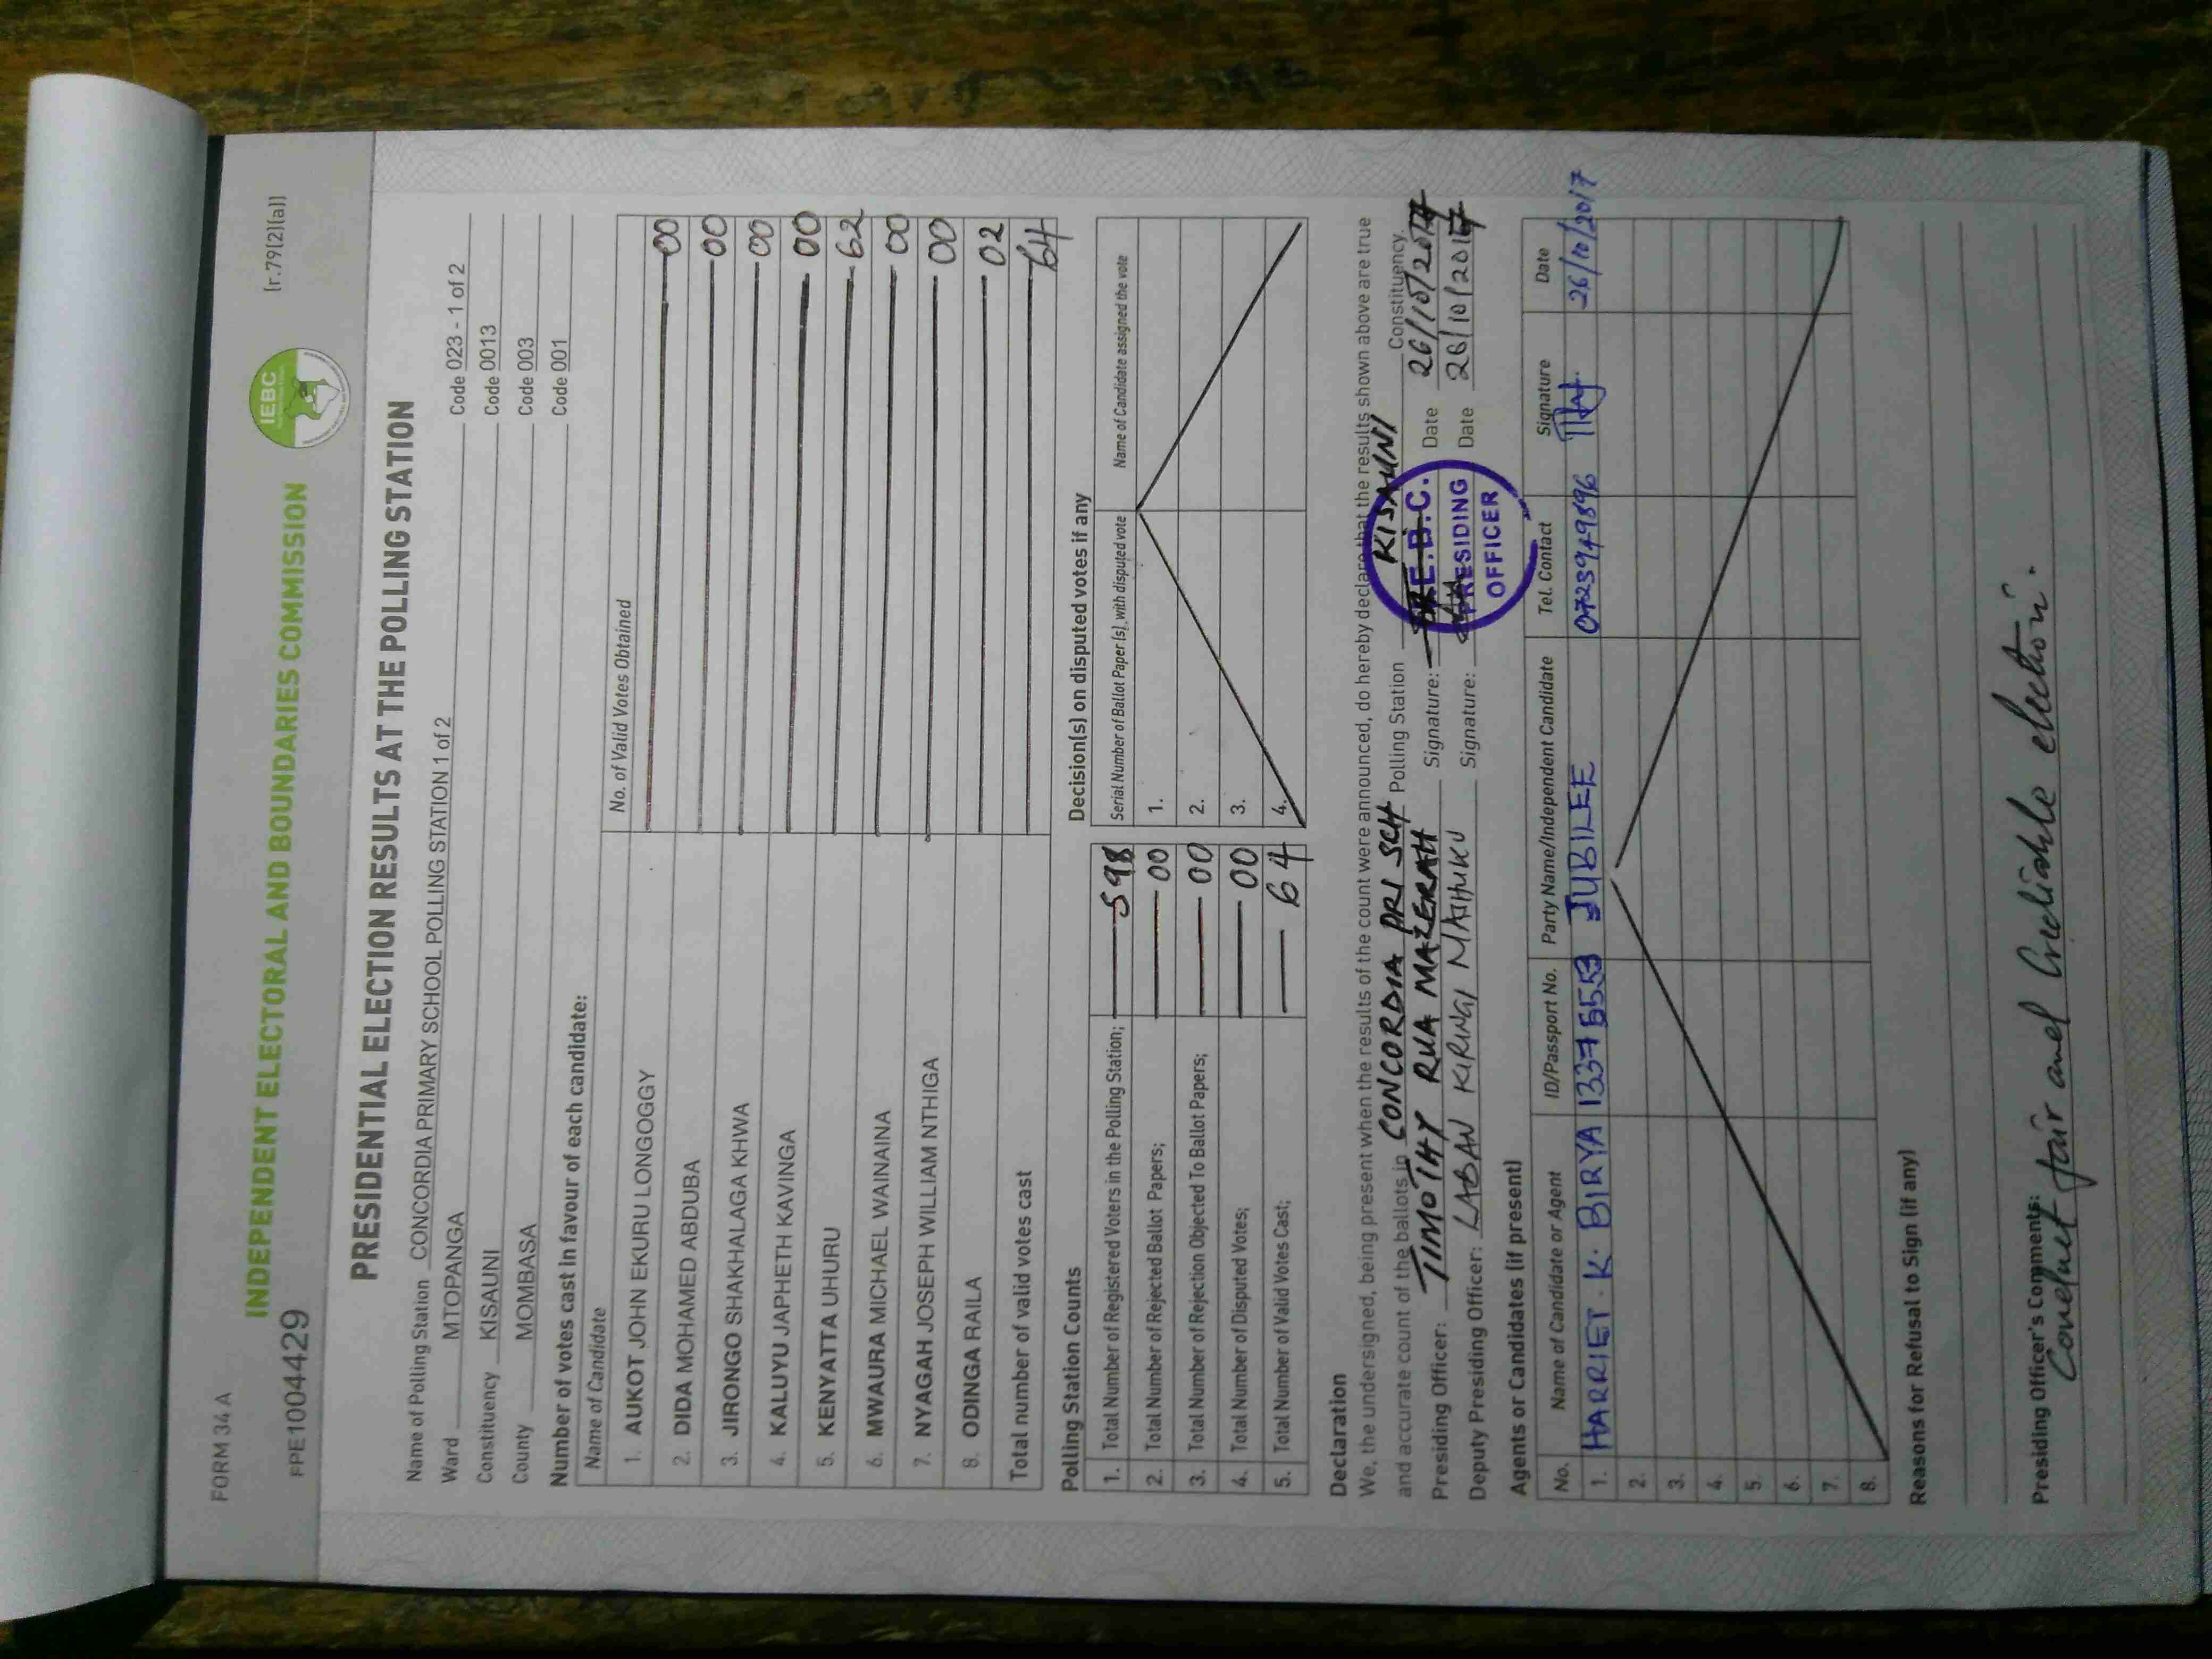 FORM 34 A
(r.79(2)(a))
IEBC
FPE1004429
INDEPENDENT ELECTORAL AND BOUNDARIES COMMISSION
PRESIDENTIAL ELECTION RESULTS AT THE POLLING STATION
Name of Polling Station CONCORDIA PRIMARY SCHOOL POLLING STATION 1 of 2 Code 023 - 1 of 2
Ward MTOPANGA Code 0013
Constituency KISAUNI Code 003
County MOMBASA Code 001
Number of votes cast in favour of each candidate:
Name of Candidate No. of Valid Votes Obtained
1. AUKOT JOHN EKURU LONGOGGY 00
2. DIDA MOHAMED ABDUBA 00
3. JIRONGO SHAKHALAGA KHWA 00
4. KALUYU JAPHETH KAVINGA 00
5. KENYATTA UHURU 62
6. MWAURA MICHAEL WAINAINA 00
7. NYAGAH JOSEPH WILLIAM NTHIGA 00
8. ODINGA RAILA 02
Total number of valid votes cast 64
Polling Station Counts
1. Total Number of Registered Voters in the Polling Station; 598
2. Total Number of Rejected Ballot Papers; 00
3. Total Number of Rejection Objected To Ballot Papers; 00
4. Total Number of Disputed Votes; 00
5. Total Number of Valid Votes Cast; 64
Decision(s) on disputed votes if any
Serial Number of Ballot Paper (s), with disputed vote Name of Candidate assigned the vote
1.
2.
3.
4.
Declaration
We, the undersigned, being present when the results of the count were announced, do hereby declare that the results shown above are true
and accurate count of the ballots in CONCORDIA PRI SCH Polling Station KISAUNI Constituency.
Presiding Officer: TIMOTHY RUA MAZERAH Signature: Date 26/10/2017
Deputy Presiding Officer: LABAN KIRINGI MATHUKU Signature: Date 26/10/2017
I.E.B.C.
PRESIDING
OFFICER
Agents or Candidates (if present)
No. Name of Candidate or Agent ID/Passport No. Party Name/Independent Candidate Tel. Contact Signature Date
1. HARRIET . K. BIRYA 13375553 JUBILEE 0723949896 26/10/2017
2.
3.
4.
5.
6.
7.
8.
Reasons for Refusal to Sign (if any)
Presiding Officer's Comments:
Conduct fair and Crediable election.